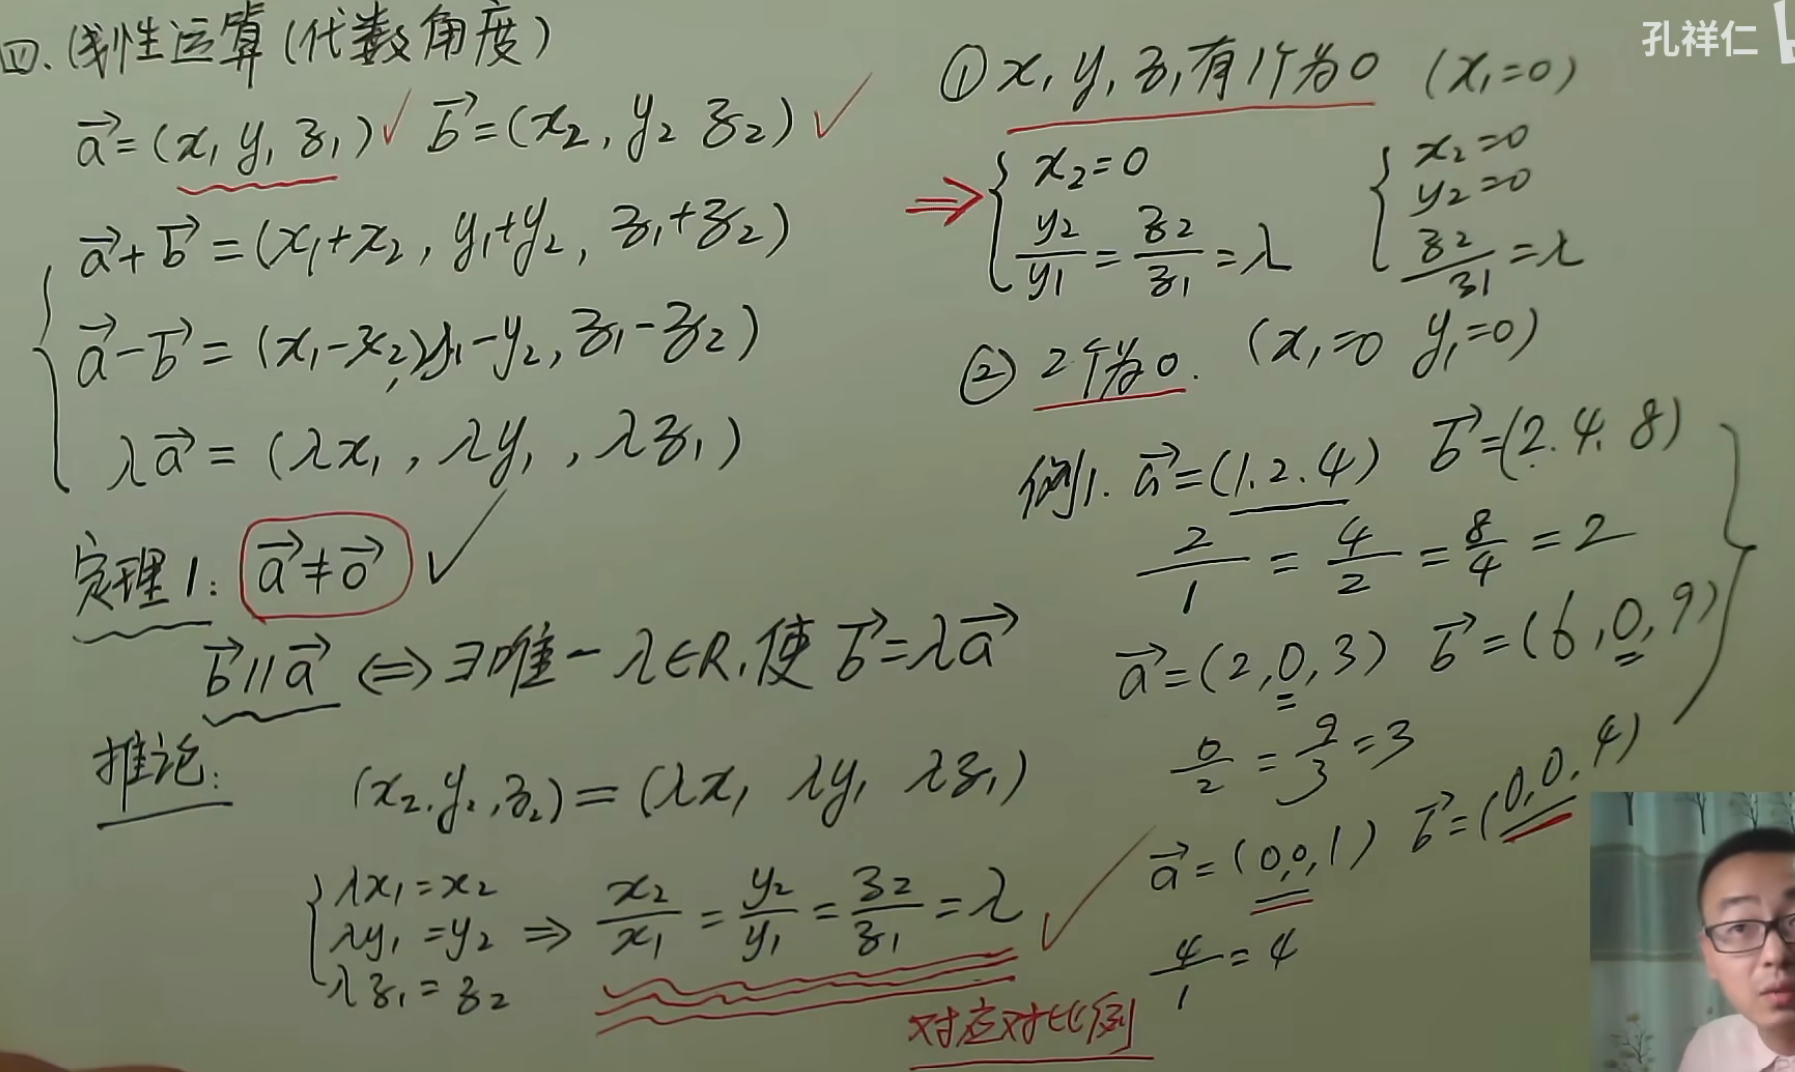 四.线性运算(代数角度)
a⃗=(x₁ y₁ z₁) b⃗=(x₂, y₂ z₂)
a⃗+b⃗=(x₁+x₂, y₁+y₂, z₁+z₂)
a⃗-b⃗=(x₁-x₂, y₁-y₂, z₁-z₂)
λa⃗=(λx₁, λy₁, λz₁)
定理1: a⃗≠0⃗
b⃗//a⃗ ⇔ ∃唯一 λ∈R,使 b⃗=λa⃗
推论:
(x₂,y₂,z₂)=(λx₁ λy₁ λz₁)
{λx₁=x₂
λy₁=y₂ ⇒ x₂/x₁=y₂/y₁=z₂/z₁=λ
λz₁=z₂
对应对比例
孔祥仁
①x₁ y₁ z₁有1个为0 (x₁=0)
⇒ {x₂=0
y₂/y₁=z₂/z₁=λ
{x₂=0
y₂=0
z₂/z₁=λ
② 2个为0. (x₁=0 y₁=0)
例1. a⃗=(1.2.4) b⃗=(2.4.8)
2/1=4/2=8/4=2
a⃗=(2,0,3) b⃗=(6,0,9)
6/2=9/3=3
a⃗=(0,0,1) b⃗=(0,0,4)
4/1=4